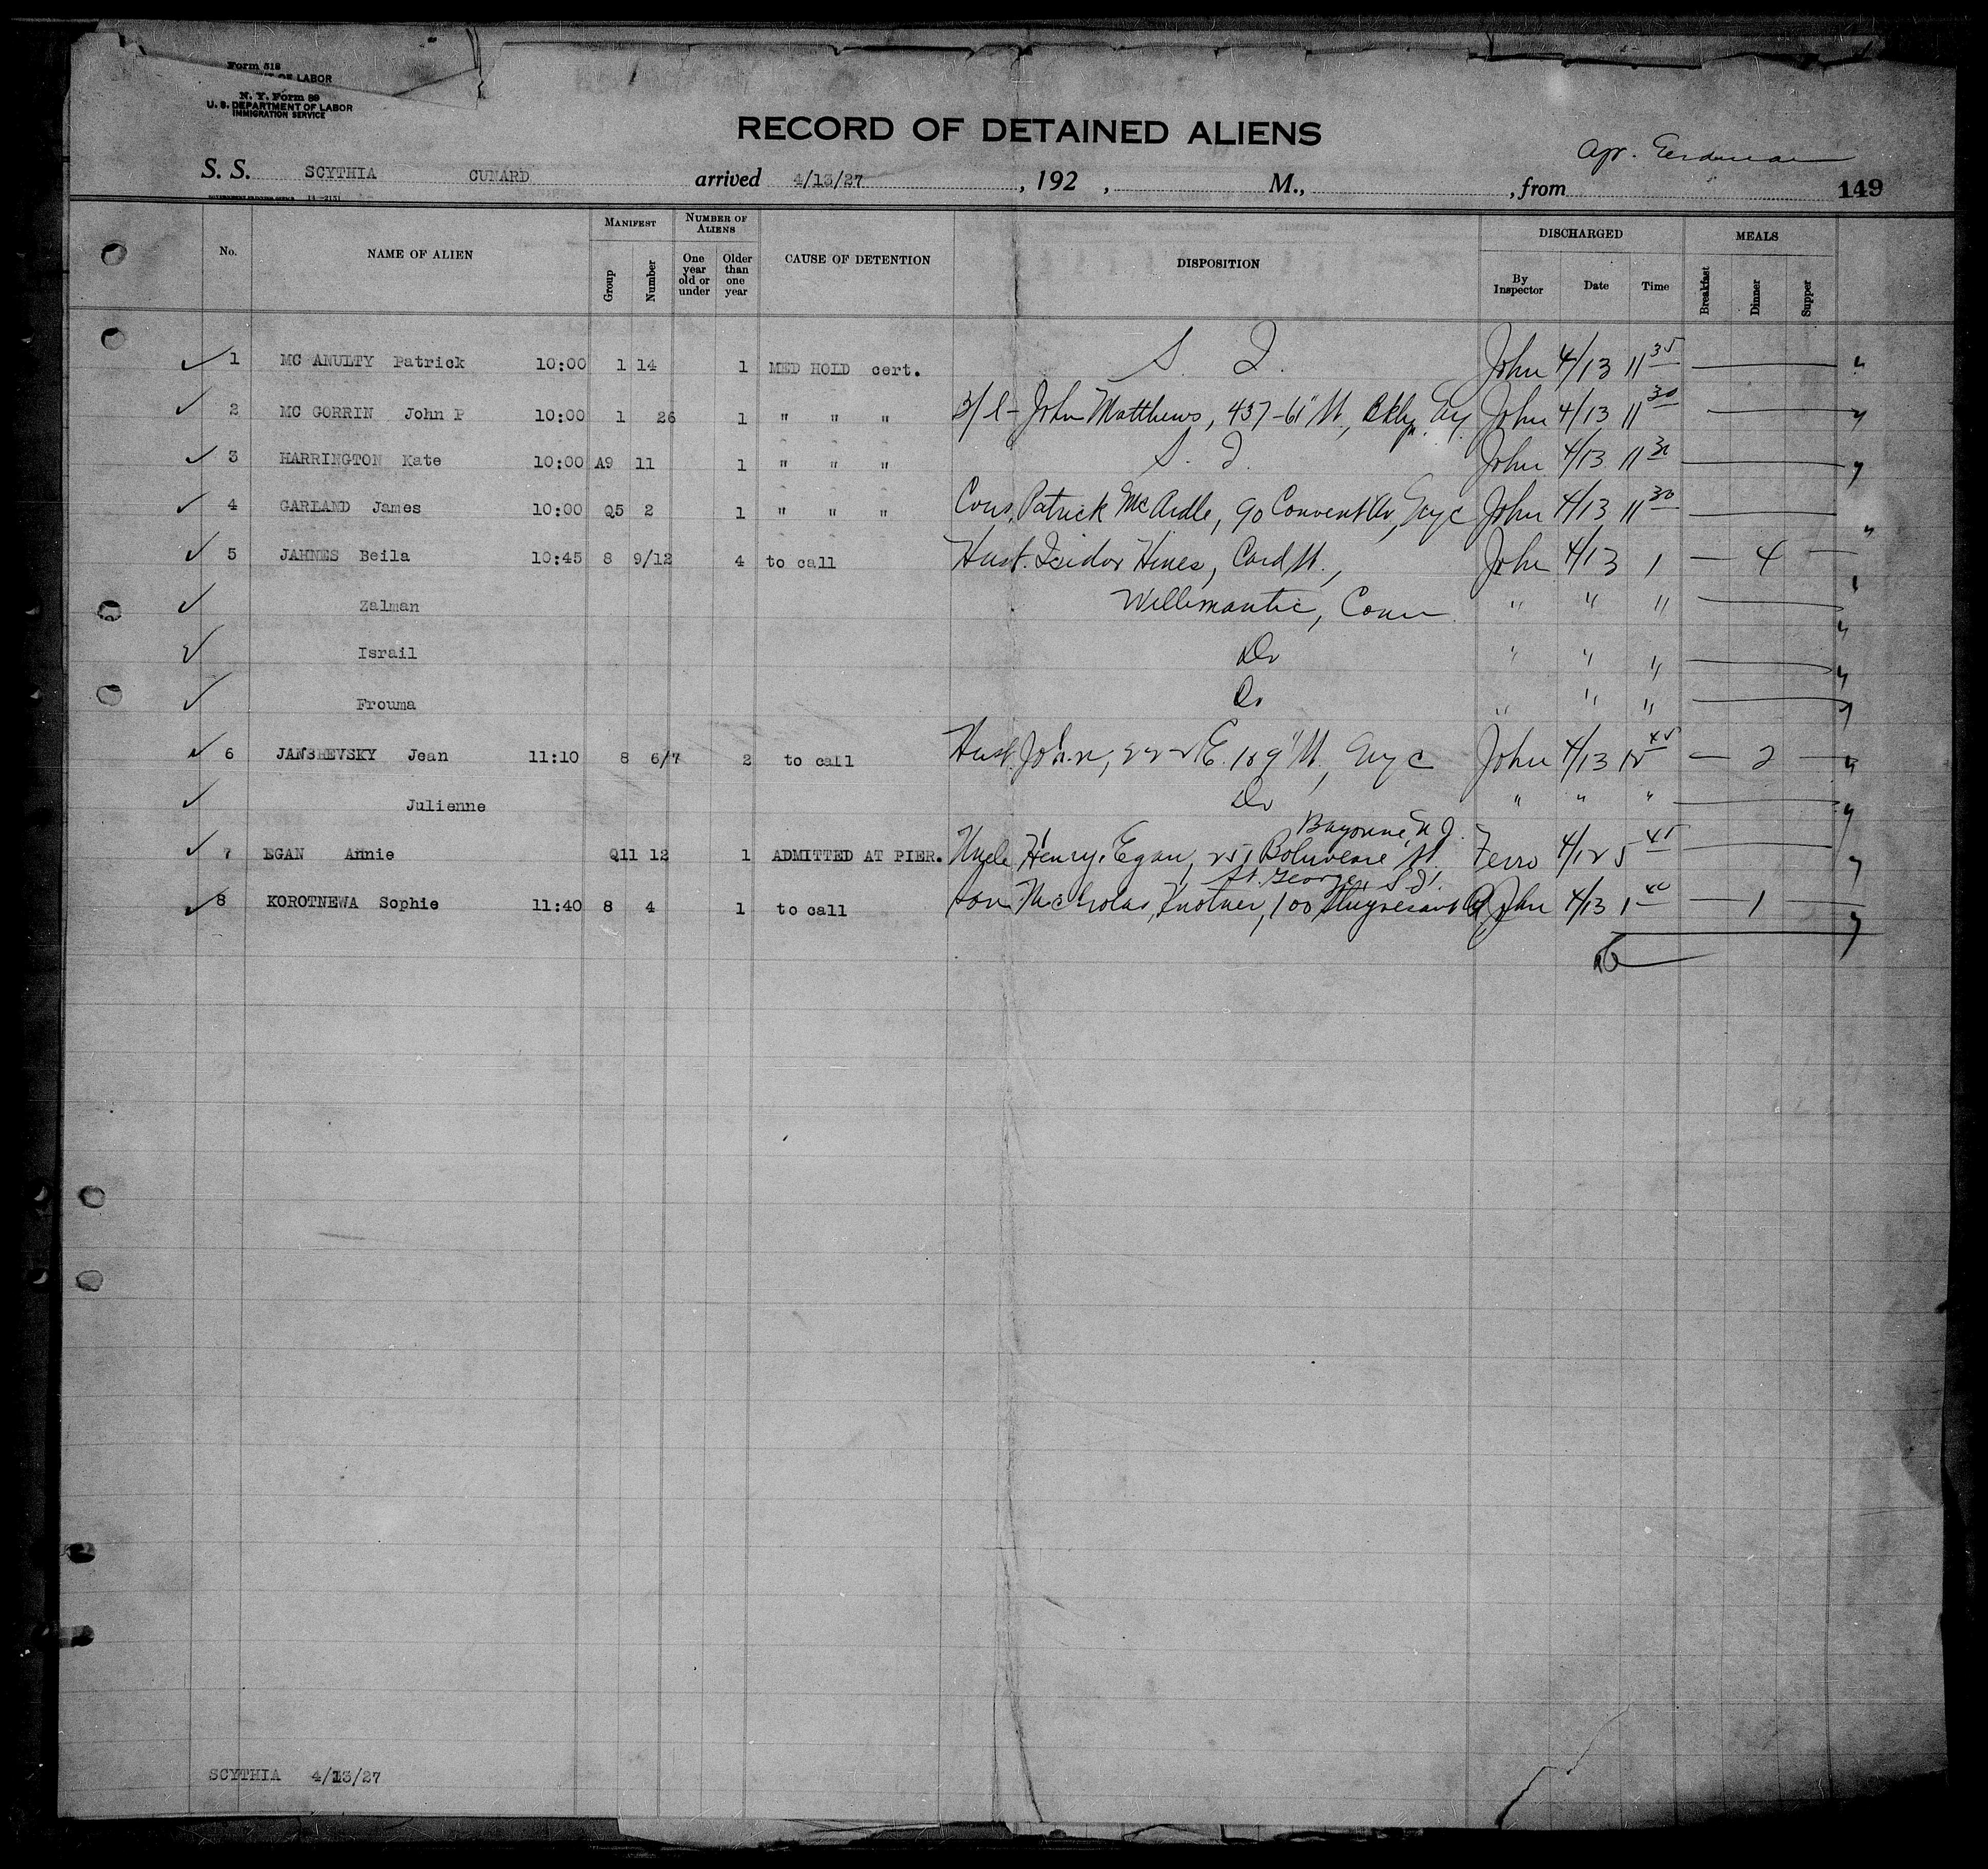 Form 518
OF LABOR
N. Y. Form 89
U. S. DEPARTMENT OF LABOR
IMMIGRATION SERVICE
RECORD OF DETAINED ALIENS
S. S. SCYTHIA CUNARD arrived 4/13/27, 192 , M., , from 149
MANIFEST NUMBER OF ALIENS DISCHARGED MEALS
No. NAME OF ALIEN Group Number One year old or under Older than one year CAUSE OF DETENTION DISPOSITION By Inspector Date Time Breakfast Dinner Supper
1 MC ANULTY Patrick 10:00 1 14 1 MED HOLD cert. S. I. John 4/13 11 35
2 MC GORRIN John P 10:00 1 26 1 " " " John Matthews, 437-61" St., Bklyn. Ny John 4/13 11 30
3 HARRINGTON Kate 10:00 A9 11 1 " " " S. I. John 4/13 11 30
4 GARLAND James 10:00 Q5 2 1 " " " Cous. Patrick McArdle, 90 Convent Av, Nyc John 4/13 11 30
5 JAHNES Beila 10:45 8 9/12 4 to call Hust. Isidor Hines, Card St., John 4/13 1 — 4 —
Zalman Willimantic, Conn " " "
Israil Do " " "
Frouma Do " " "
6 JANSHEVSKY Jean 11:10 8 6/7 2 to call Hust. John, 222 E. 109" St, Nyc John 4/13 12 45 — 2 —
Julienne Do " " "
Bayonne, N J.
7 EGAN Annie Q11 12 1 ADMITTED AT PIER. Uncle Henry Egan, 251 St. Ferro 4/12 5 45
St. George, S I.
8 KOROTNEWA Sophie 11:40 8 4 1 to call Son Nicholas, 100 Stuyvesant Pl John 4/13 1 40 — 1
SCYTHIA 4/13/27